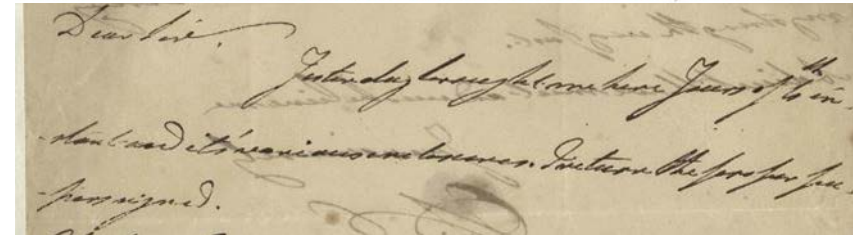 Dear Sir.
Yesterday brought me here Yours of 6th in-
-stant and its various enclosures. I return the proper pa-
-pers signed.